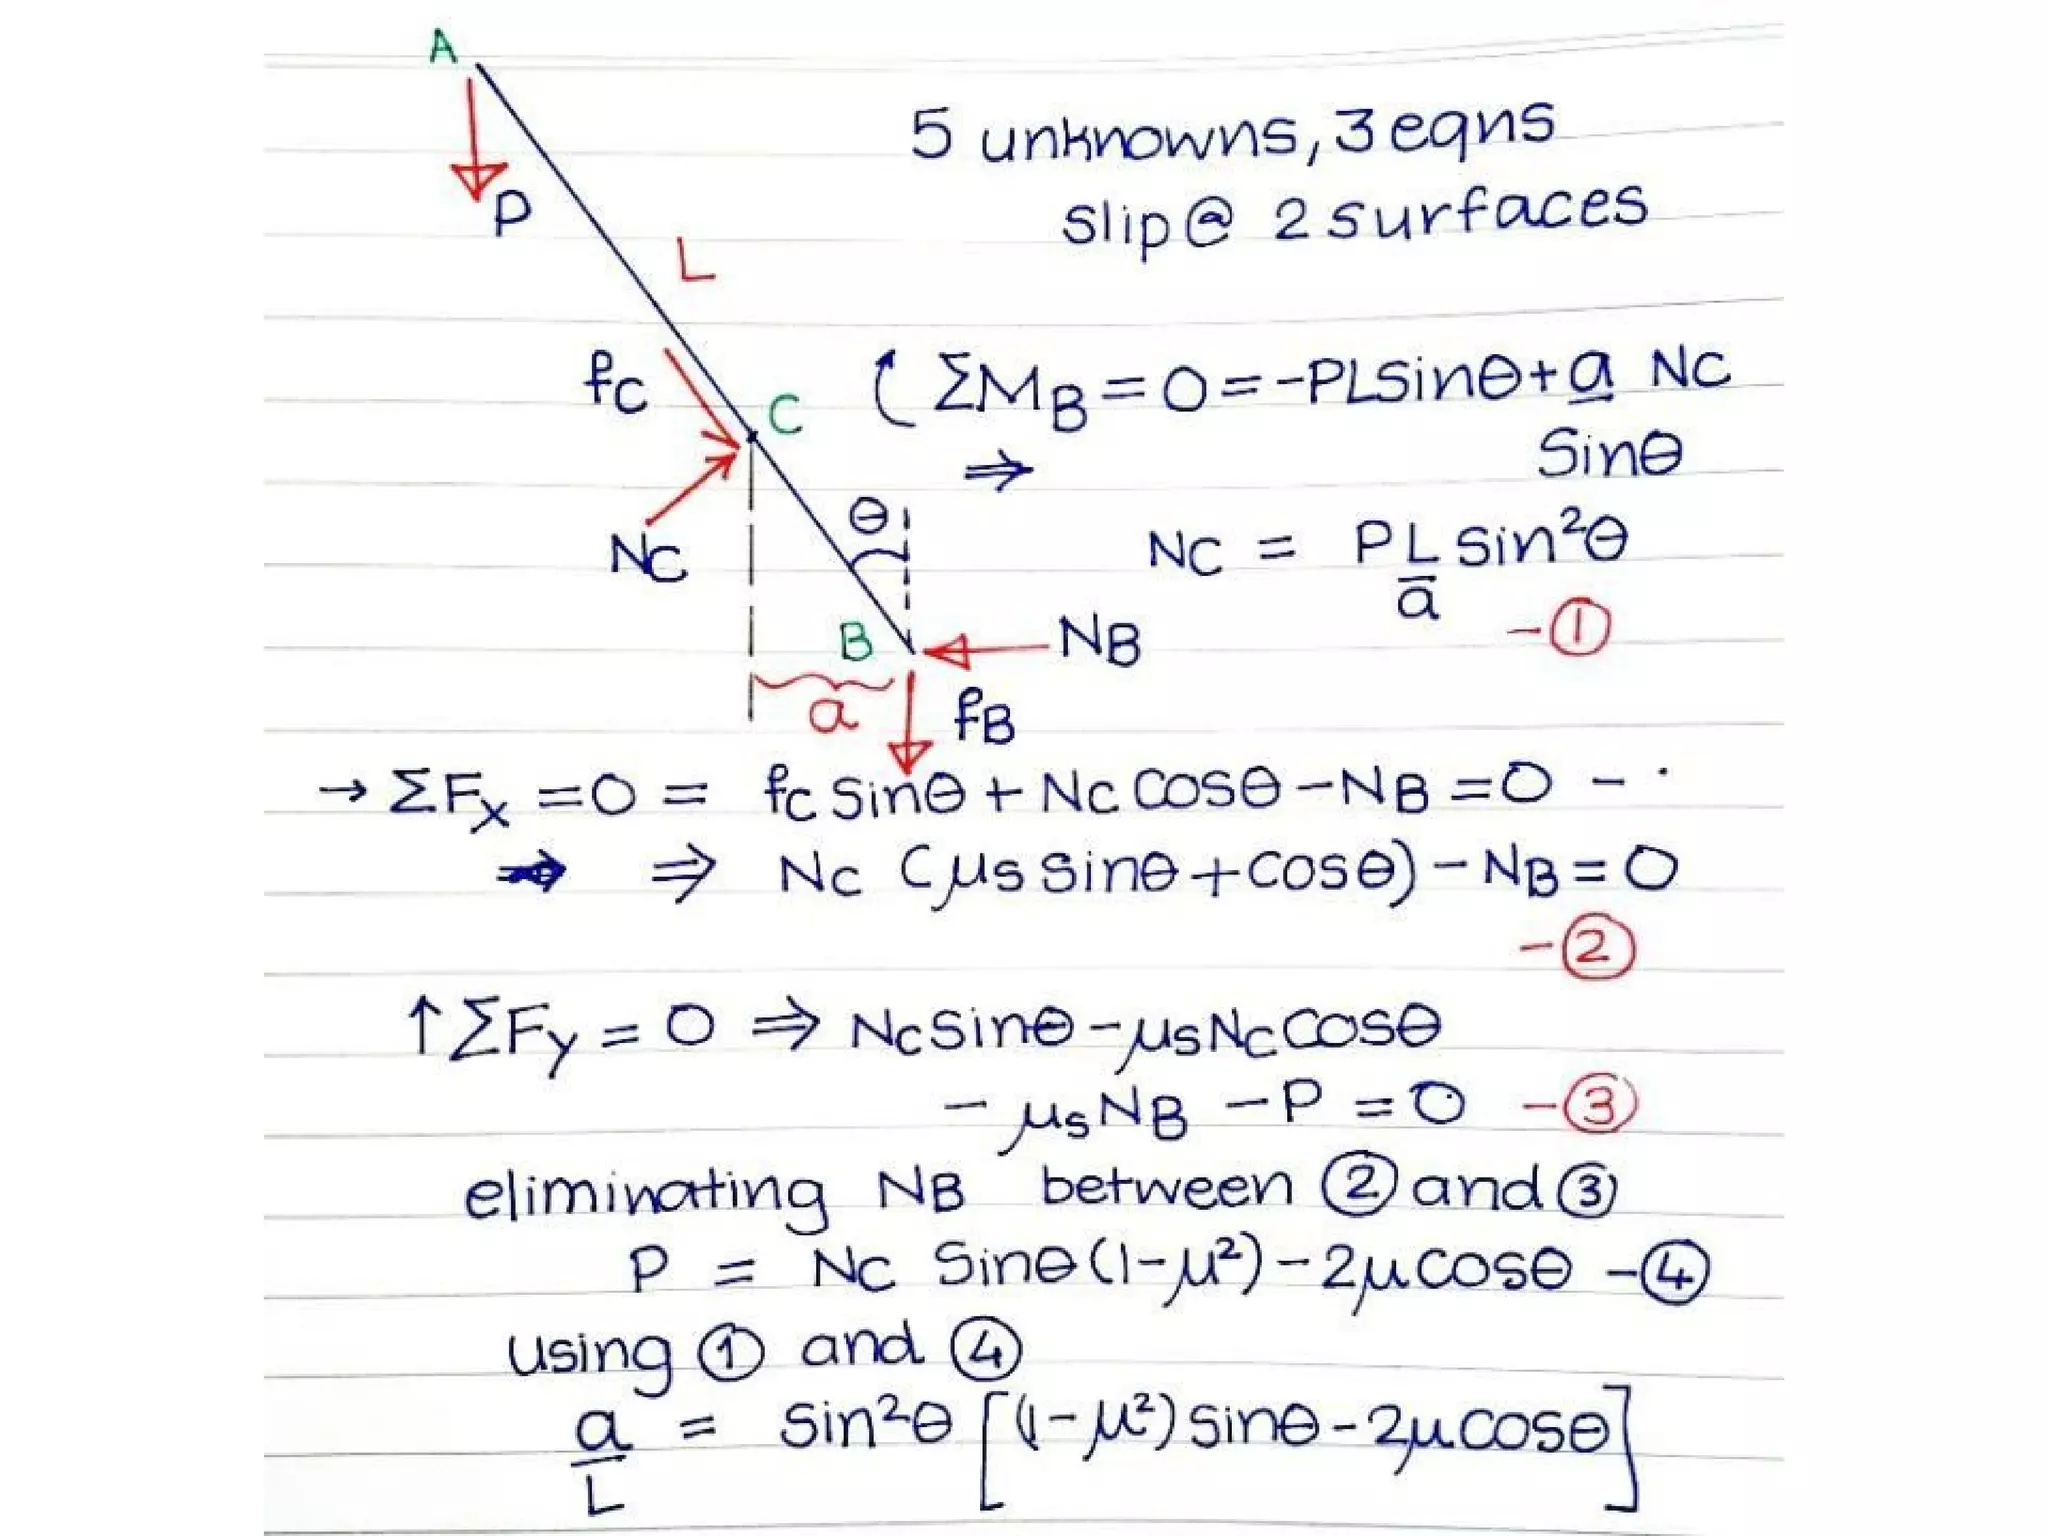 A
P
L
5 unknowns, 3 eqns
slip @ 2 surfaces
fc
C
ΣMB = 0 = -PLsinθ + a Nc
Sinθ
⇒
Nc
θ
Nc = PL sin²θ
a
- ①
B
NB
a
fB
→ ΣFx = 0 = fc sinθ + Nc cosθ - NB = 0 -
⇒ Nc (μs sinθ + cosθ) - NB = 0
- ②
↑ ΣFy = 0 ⇒ Nc sinθ - μs Nc cosθ
- μs NB - P = 0 - ③
eliminating NB between ② and ③
P = Nc Sinθ (1-μ²) - 2μ cosθ - ④
using ① and ④
a = sin²θ [(1-μ²) sinθ - 2μ cosθ]
L